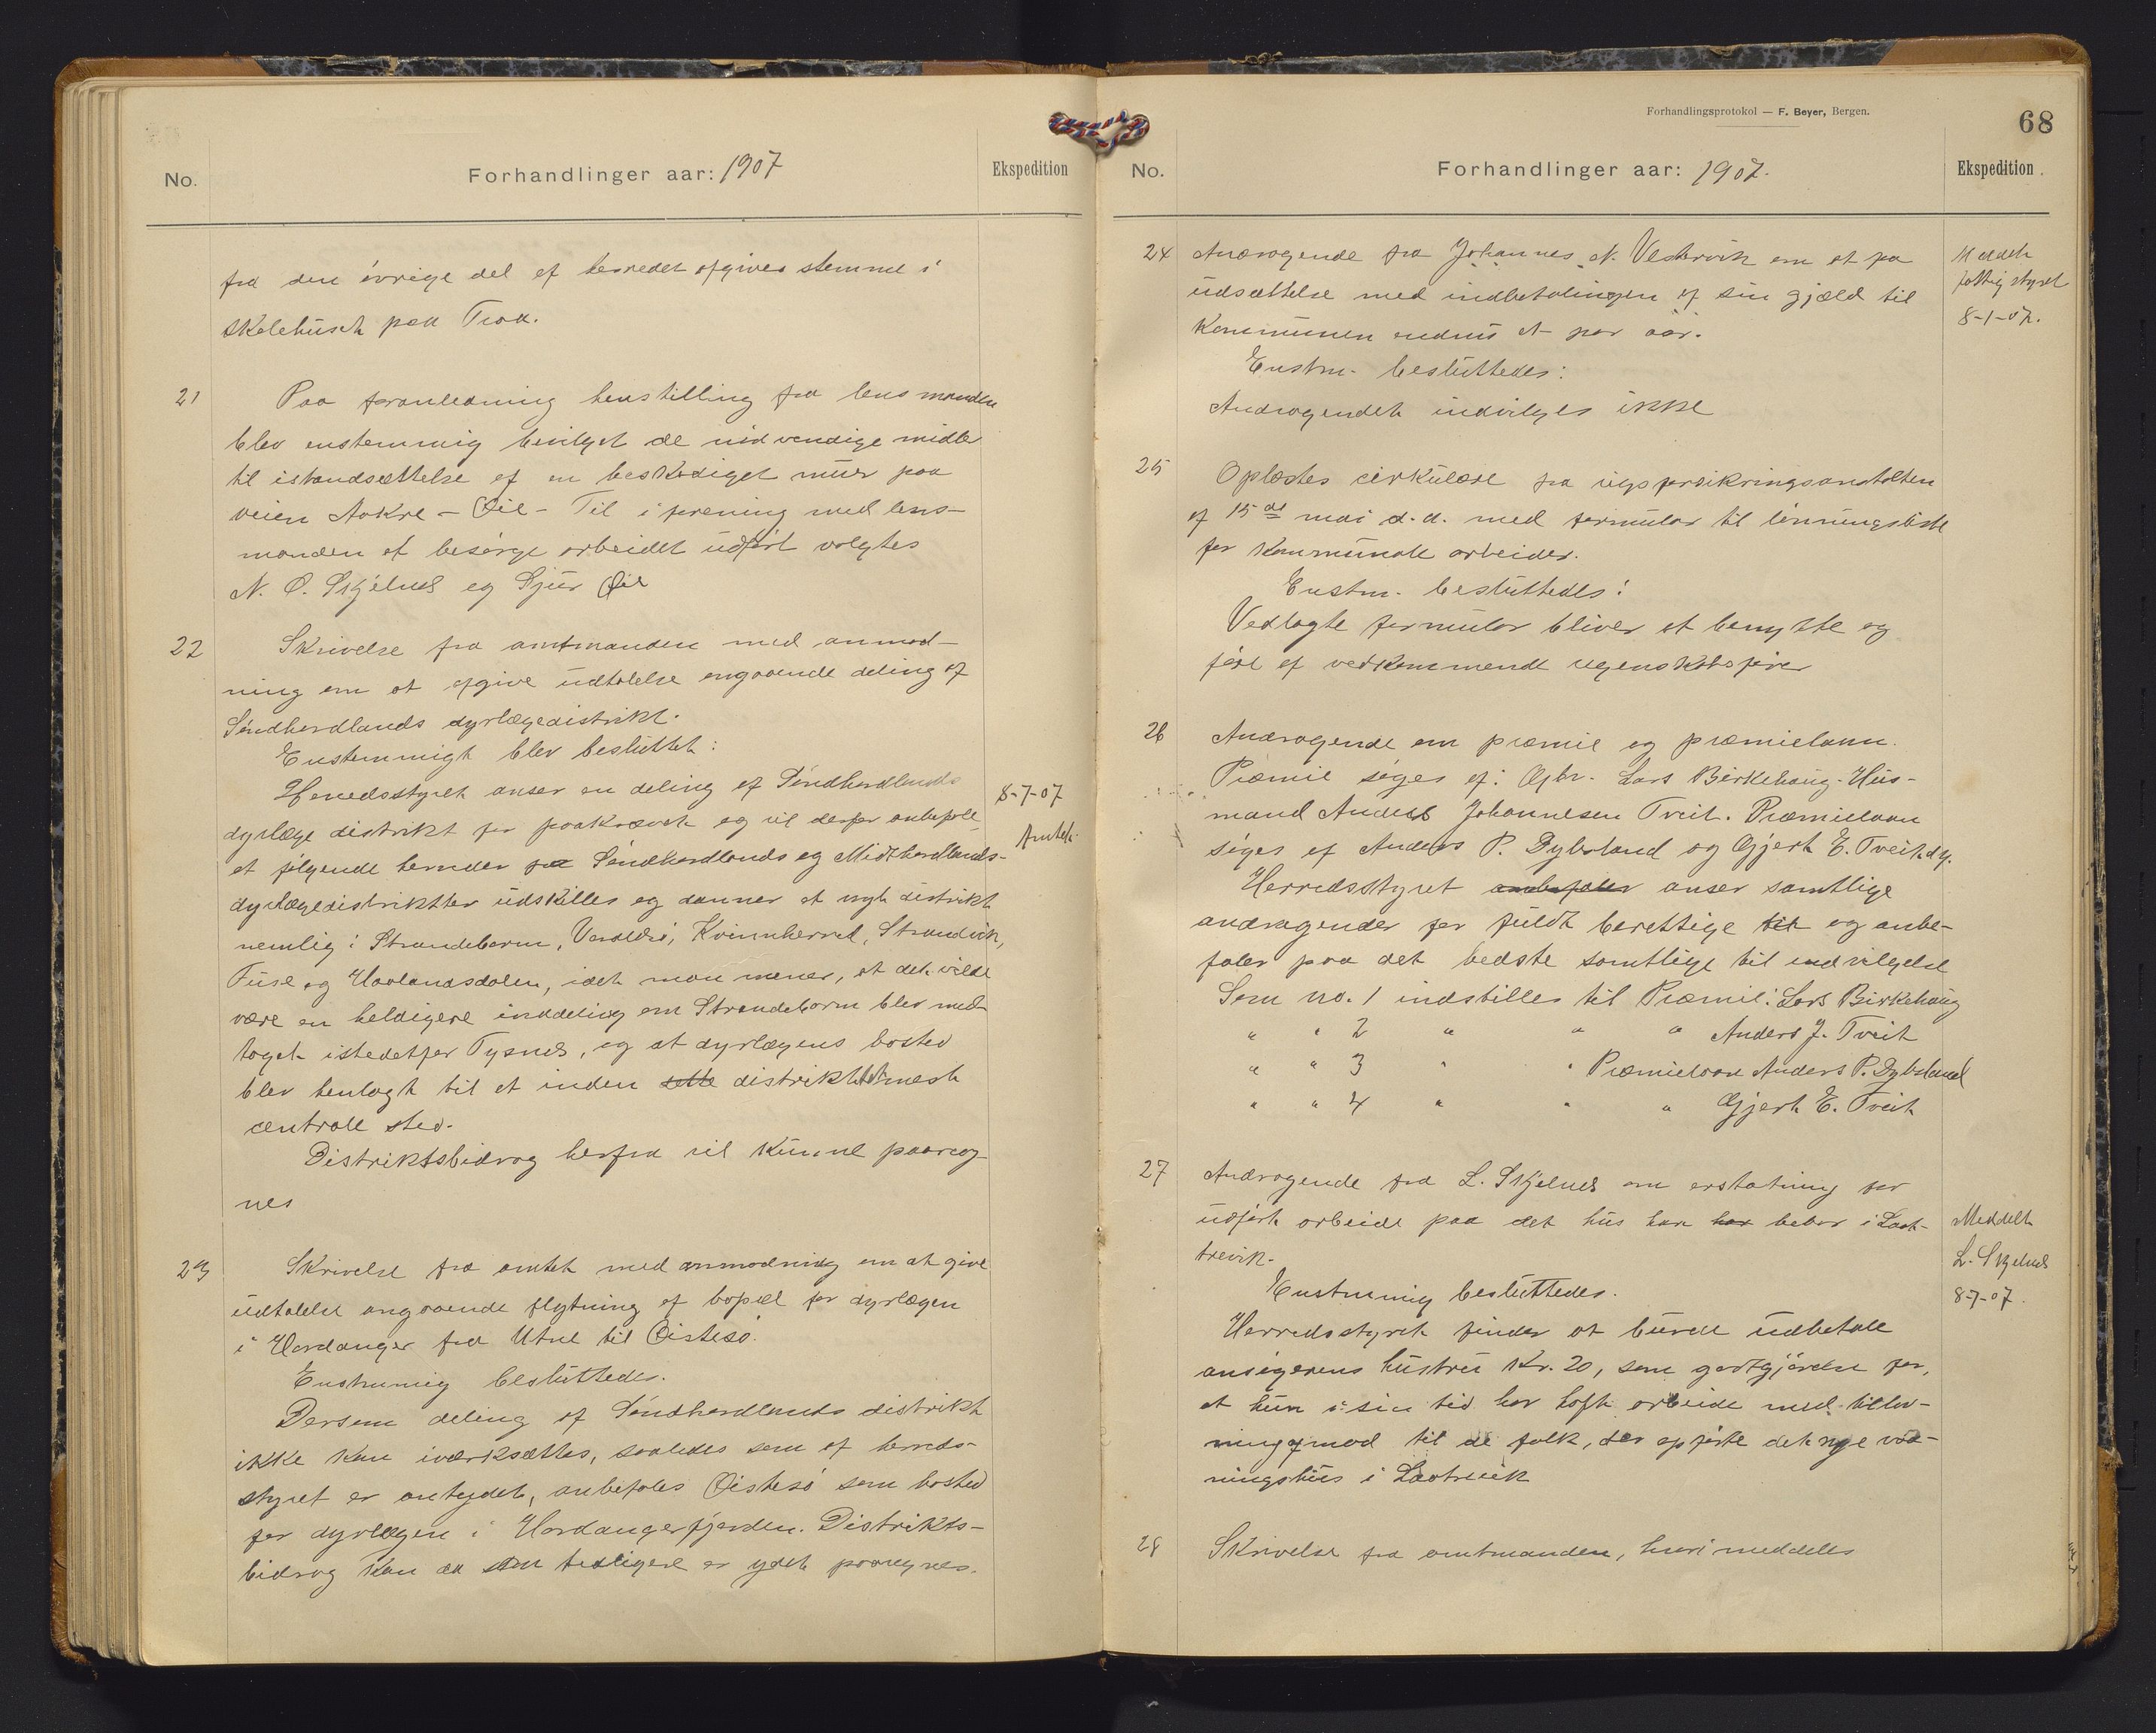 No.
Forhandlinger aar: 1907
Ekspedition
fra den övrige del af herredet afgives stemme i
skolehuset paa Troa.
21
Paa foranledning henstilling fra lensmanden
blev enstemmig bevilget de nödvendige midler
til istandsættelse af en beskadiget muur paa
veien Aakre - Öie - Til i forening med lens-
manden at besörge arbeidet udfört valgtes
N. O. Skjelnes og Sjur Öie
22
Skrivelse fra amtmanden med anmod-
ning om at afgive udtalelse angaaende deling af
Söndhordlands dyrlægedistrikt.
Enstemmigt blev besluttet:
Herredsstyret anser en deling af Söndhordlands
dyrlæge distrikt for paakrævet og vil derfor anbefale
at fölgende herreder fra Söndhordlands og Midthordlands-
dyrlægedistrikter udskilles og danner et nyt distrikt
nemlig: Strandebarm, Varaldsö, Kvinnherred, Strandvik,
Fuse og Haalandsdalen, idet man mener, at det vilde
være en heldigere inddeling om Strandebarm blev med-
taget istedetfor Tysnes, og at dyrlægens bosted
blev henlagt til et inden dette distriktets mest
centrale sted.
Distriktsbidrag herfra vil kunne paareg-
nes
8-7-07
Amtet.
23
Skrivelse fra amtet med anmodning om at give
udtalelse angaaende flytning af bopæl for dyrlægen
i Hardanger fra Utne til Östesö.
Enstemmig besluttedes.
Dersom deling af Söndhordlands distrikt
ikke kan iværksættes, saaledes som af herreds-
styret er antydet, anbefales Östesö som bosted
for dyrlægen i Hardangerfjorden. Distrikts-
bidrag kan da som tidligere er ydet paaregnes.
Forhandlingsprotokol — F. Beyer, Bergen.
68
No.
Forhandlinger aar: 1907.
Ekspedition
24
Andragende fra Johannes N. Vestervik om at faa
udsættelse med indbetalingen af sin gjæld til
kommunen endnu et par aar.
Enstm. besluttedes:
Andragendet indvilges ikke
Meddelt
fattigstyret
8-7-07.
25
Oplæstes cirkulære fra rigsforsikringsanstalten
af 15de mai d.a. med formular til lönningsliste
for kommunale arbeider.
Enstm. besluttedes:
Vedlagte formular bliver at benytte og
före af vedkommende regenskabsförer
26
Andragende om præmie og præmielaan.
Præmie söges af: Gbr. Lars Birkehaug. Hus-
mand Anders Johannesen Tveit. Præmielaan
söges af Anders P. Dybsland og Gjert E. Tveit d.y.
Herredsstyret anbefaler anser samtlige
andragender for fuldt berettige til og anbe-
faler paa det bedste samtlige til indvilgelse
Som no. 1 indstilles til Præmie: Lars Birkehaug
" " 2 " " " Anders J. Tveit
" " 3 " " Præmielaan Anders P. Dybsland
" " 4 " " " Gjert E. Tveit
27
Andragende fra L. Skjelnes om erstatning for
udfört arbeide paa det hus han har bebor i Laat-
trevik.
Enstemmig besluttedes.
Herredsstyret finder at burde udbetale
ansögerens hustru Kr. 20, som godtgjörelse for,
at hun i sin tid har haft arbeide med tillav-
ning af mad til de folk, der opförte det nye vaa-
ningshus i Laatrevik
Meddelt
L. Skjelnes
8-7-07.
28
Skrivelse fra amtmanden, hvori meddeles